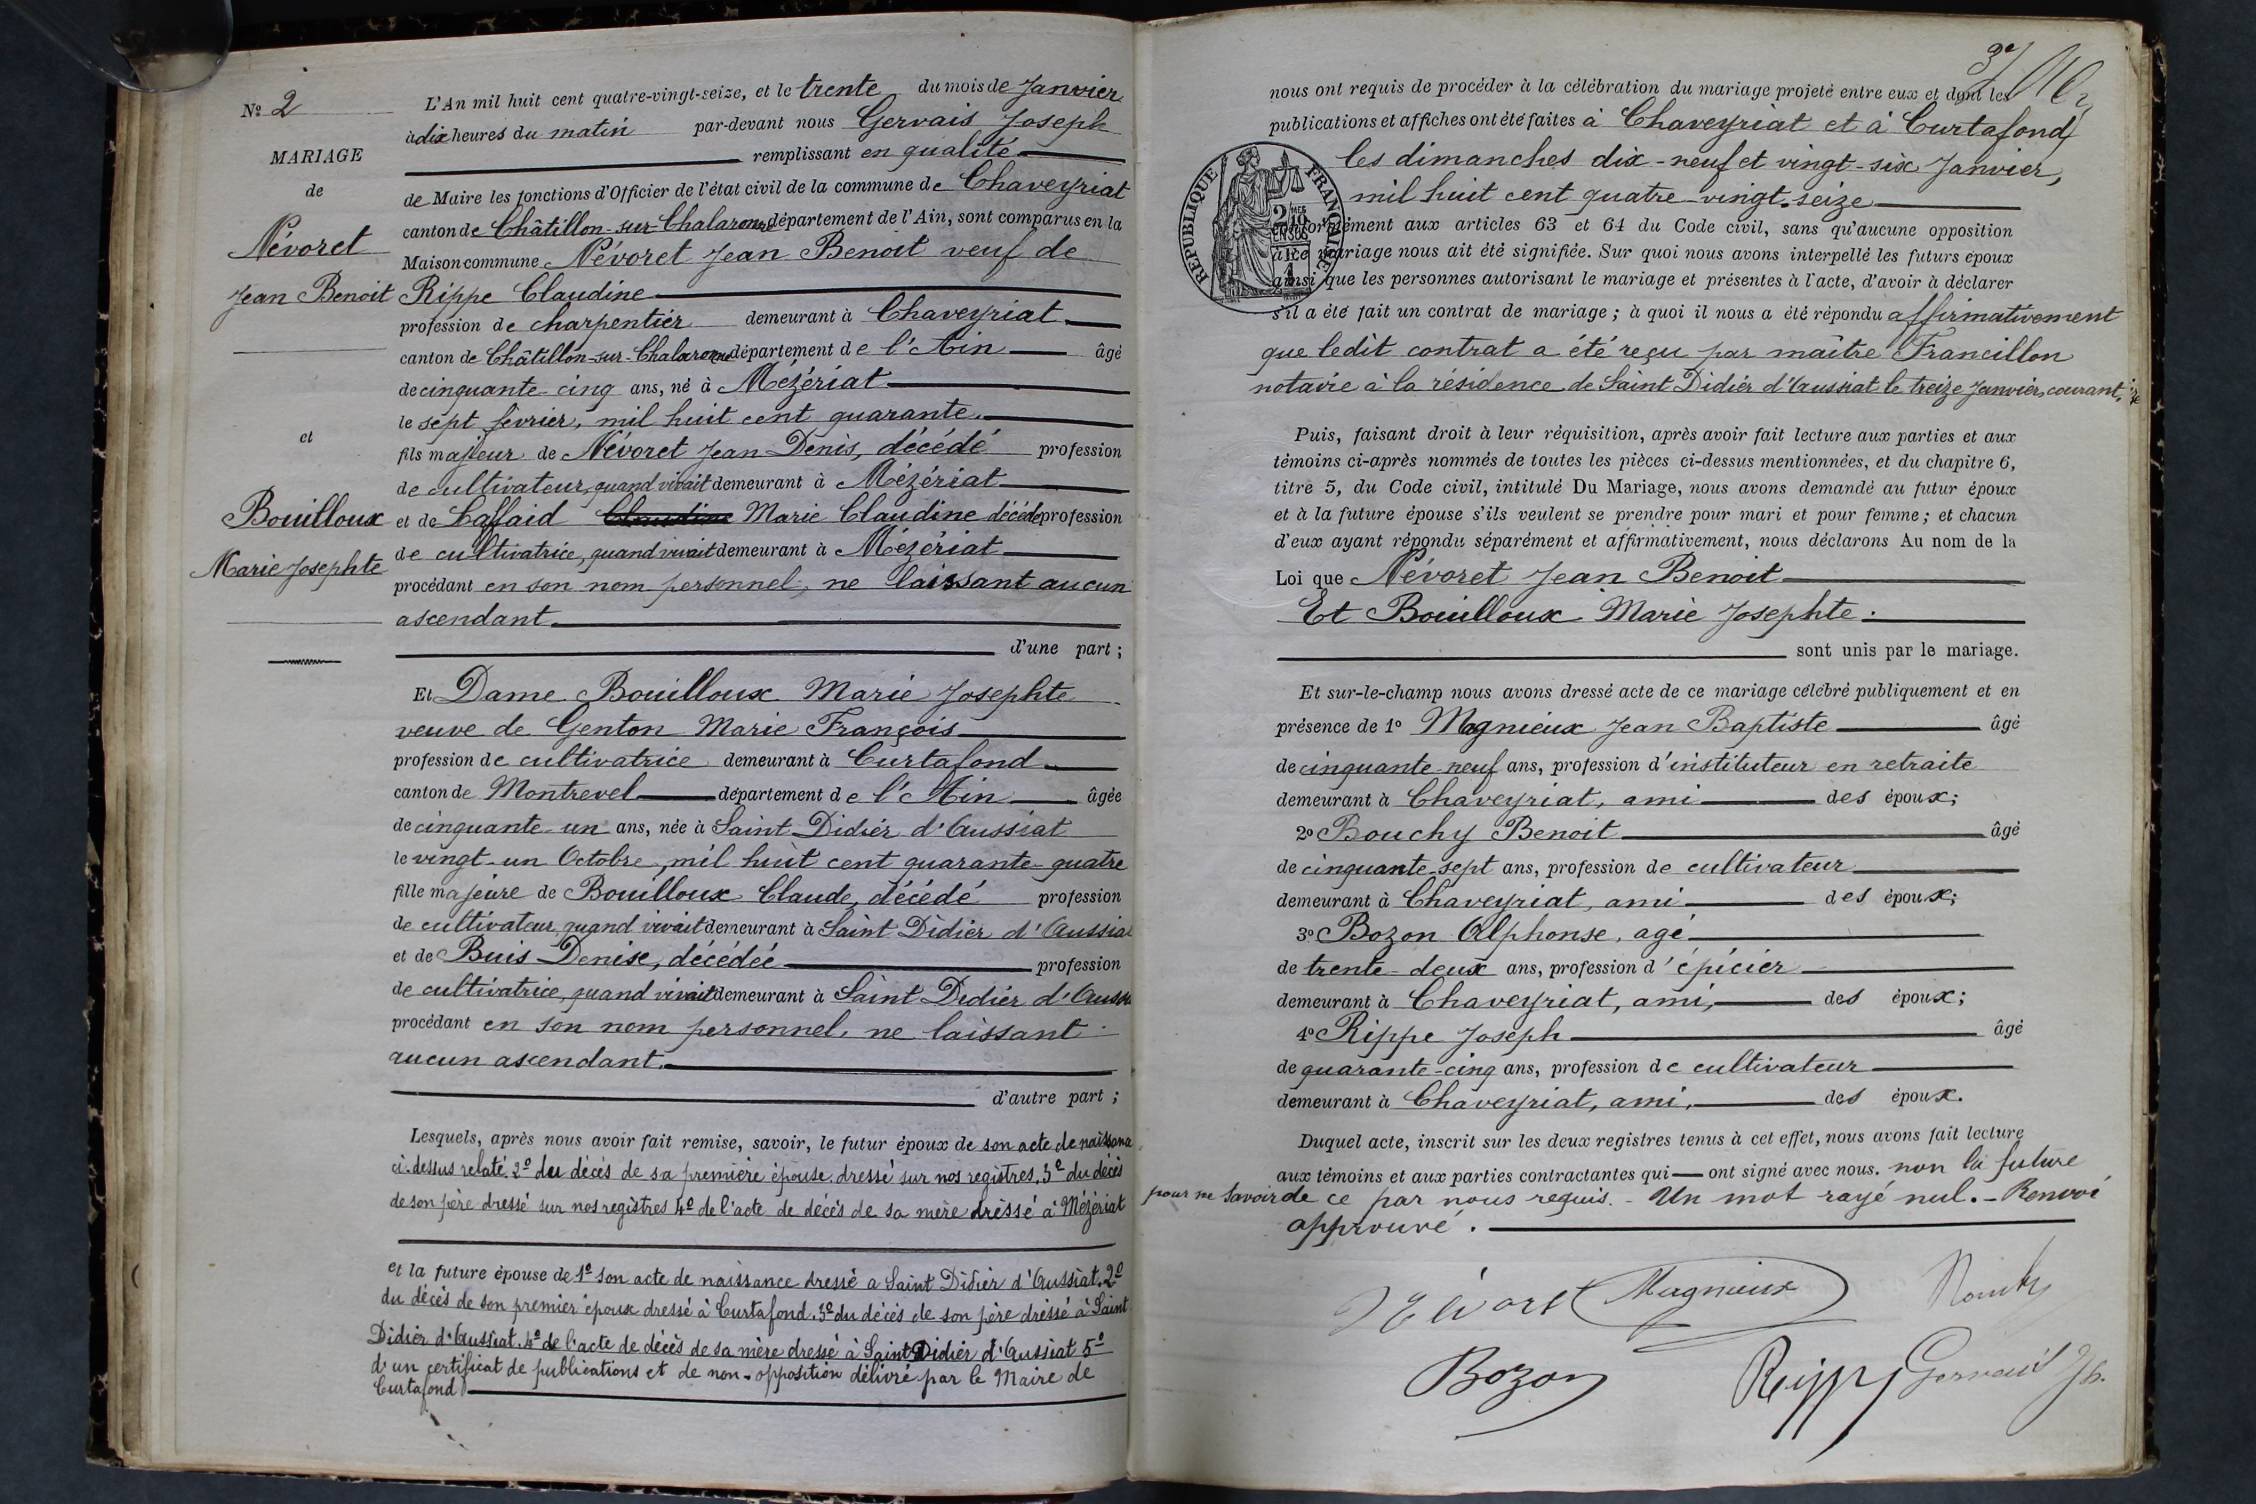 Nº 2
MARIAGE
de
Névoret
Jean Benoit
et
Bouilloux
Marie Josephte
L'An mil huit cent quatre-vingt-seize, et le trente du mois de Janvier
à dix heures du matin par-devant nous Gervais Joseph
remplissant en qualité
de Maire les fonctions d'Officier de l'état civil de la commune de Chaveyriat
canton de Châtillon-sur-Chalaronne département de l'Ain, sont comparus en la
Maison commune Névoret Jean Benoit veuf de
Rippe Claudine
profession de charpentier demeurant à Chaveyriat
canton de Châtillon-sur-Chalaronne département de l'Ain âgé
de cinquante-cinq ans, né à Mézériat
le sept février, mil huit cent quarante
fils majeur de Névoret Jean Denis, décédé profession
de cultivateur, quand vivait demeurant à Mézériat
et de Laffaid Claudine Marie Claudine décédée profession
de cultivatrice, quand vivait demeurant à Mézériat
procédant en son nom personnel, ne laissant aucun
ascendant
d'une part ;
Et Dame Bouilloux Marie Josephte
veuve de Genton Marie François
profession de cultivatrice demeurant à Curtafond
canton de Montrevel département de l'Ain âgée
de cinquante-un ans, née à Saint Didier d'Aussiat
le vingt-un Octobre, mil huit cent quarante-quatre
fille majeure de Bouilloux Claude, décédé profession
de cultivateur, quand vivait demeurant à Saint Didier d'Aussiat
et de Buis Denise, décédée profession
de cultivatrice, quand vivait demeurant à Saint Didier d'Auss
procédant en son nom personnel, ne laissant
aucun ascendant.
d'autre part ;
Lesquels, après nous avoir fait remise, savoir, le futur époux de son acte de naissance
ci-dessus relaté, 2º du décès de sa première épouse dressé sur nos registres, 3º du décès
de son père dressé sur nos registres 4º de l'acte de décès de sa mère dressé à Mézériat
et la future épouse de 1º son acte de naissance dressé a Saint Didier d'Aussiat, 2º
du décès de son premier époux dressé à Curtafond. 3º du décès de son père dressé à Saint
Didier d'Aussiat. 4º de l'acte de décès de sa mère dressé à Saint Didier d'Aussiat 5º
d'un certificat de publications et de non-opposition délivré par le Maire de
Curtafond
3e
nous ont requis de procéder à la célébration du mariage projeté entre eux et dont les
publications et affiches ont été faites à Chaveyriat et à Curtafond
les dimanches dix-neuf et vingt-six Janvier,
mil huit cent quatre-vingt-seize
RÉPUBLIQUE FRANÇAISE
conformément aux articles 63 et 64 du Code civil, sans qu'aucune opposition
à ce mariage nous ait été signifiée. Sur quoi nous avons interpellé les futurs époux
ainsi que les personnes autorisant le mariage et présentes à l'acte, d'avoir à déclarer
s'il a été fait un contrat de mariage ; à quoi il nous a été répondu affirmativement
que ledit contrat a été reçu par maître Francillon
notaire à la résidence de Saint Didier d'Aussiat le treize Janvier, courant,
Puis, faisant droit à leur réquisition, après avoir fait lecture aux parties et aux
témoins ci-après nommés de toutes les pièces ci-dessus mentionnées, et du chapitre 6,
titre 5, du Code civil, intitulé Du Mariage, nous avons demandé au futur époux
et à la future épouse s'ils veulent se prendre pour mari et pour femme ; et chacun
d'eux ayant répondu séparément et affirmativement, nous déclarons Au nom de la
Loi que Névoret Jean Benoit
Et Bouilloux Marie Josephte.
sont unis par le mariage.
Et sur-le-champ nous avons dressé acte de ce mariage célébré publiquement et en
présence de 1º Magnieux Jean Baptiste âgé
de cinquante-neuf ans, profession d'instituteur en retraite
demeurant à Chaveyriat, ami des époux ;
2º Bouchy Benoit âgé
de cinquante-sept ans, profession de cultivateur
demeurant à Chaveyriat, ami des époux ;
3º Bozon Alphonse, agé
de trente-deux ans, profession d'épicier
demeurant à Chaveyriat, ami, des époux ;
4º Rippe Joseph âgé
de quarante-cinq ans, profession de cultivateur
demeurant à Chaveyriat, ami, des époux.
Duquel acte, inscrit sur les deux registres tenus à cet effet, nous avons fait lecture
aux témoins et aux parties contractantes qui ont signé avec nous. non la future
pour ne savoir de ce par nous requis. - Un mot rayé nul. - Renvoi
approuvé.
Névoret Magnieux
Bozon Rippe Gervais Jh.